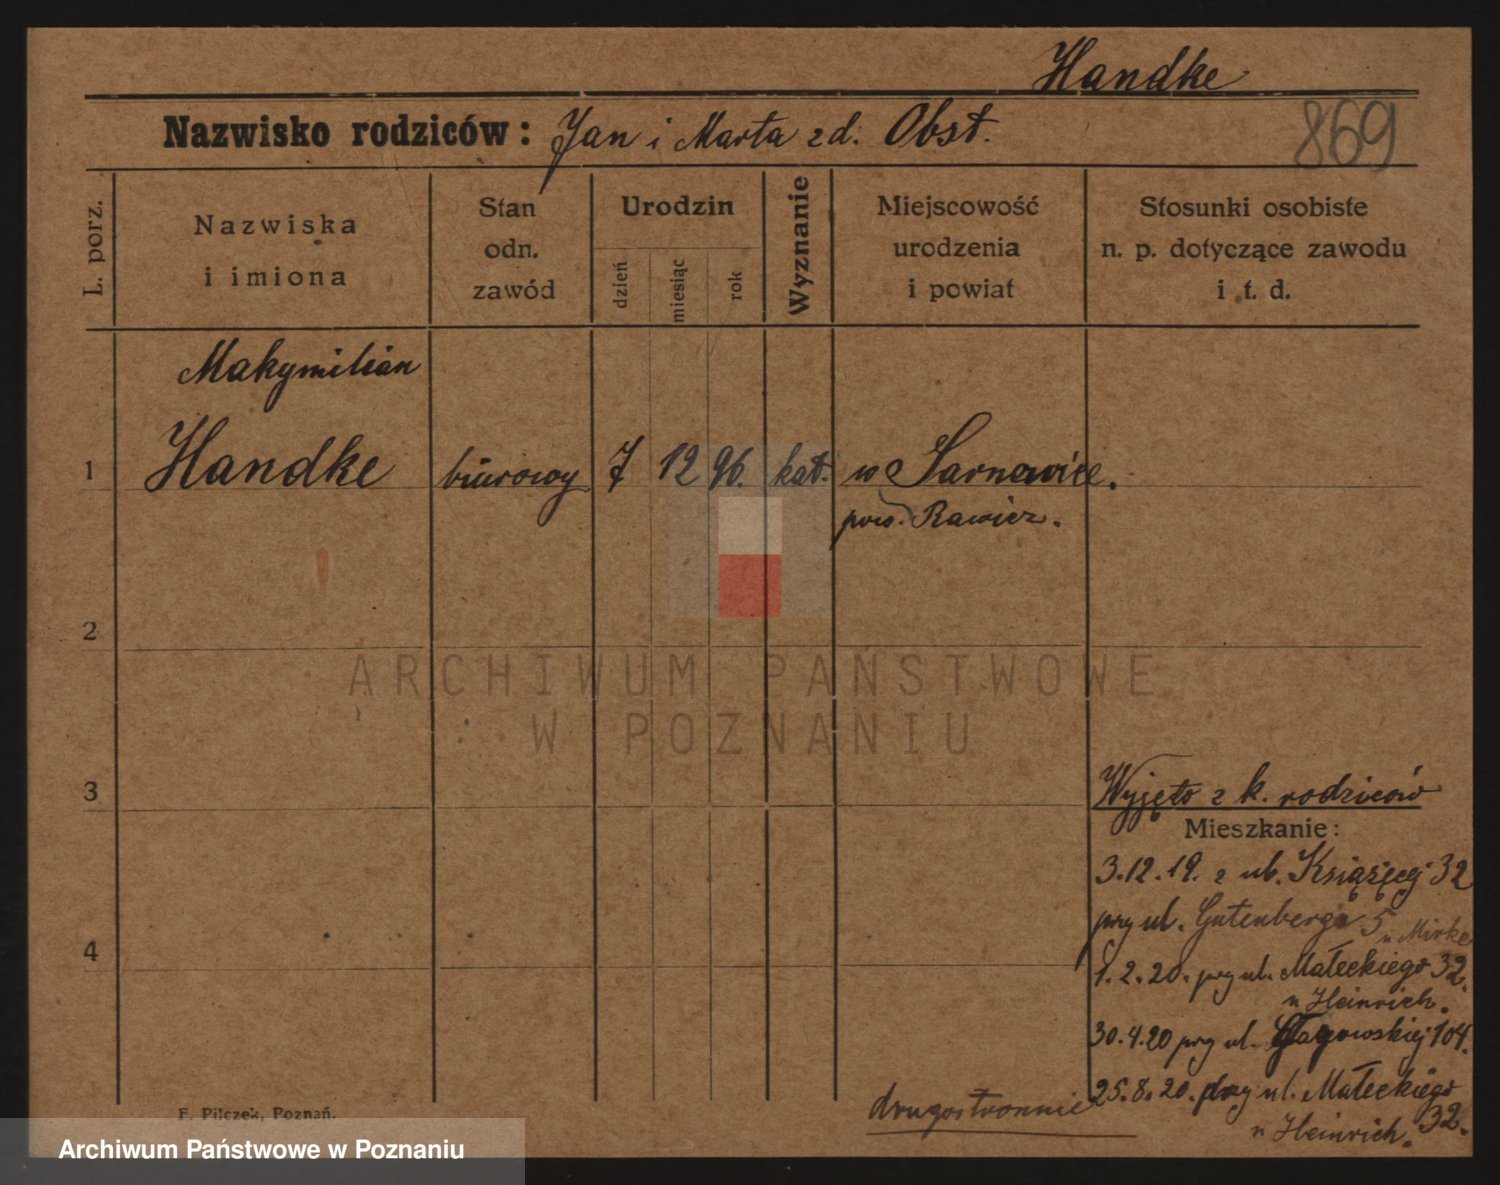 Handke
Nazwisko rodziców: Jan i Marta zd. Obst.
869
L. porz.
Nazwiska
i imiona
Stan
odn.
zawód
Urodzin
dzień
miesiąc
rok
Wyznanie
Miejscowość
urodzenia
i powiat
Stosunki osobiste
n. p. dotyczące zawodu
i t. d.
Makymilian
1 Handke biurowy 7 12 96. kat. w Sarnowice.
pow. Rawicz.
2
ARCHIWUM PAŃSTWOWE
W POZNANIU
3
Wyjęto z k. rodziców
Mieszkanie:
3.12.19. z ul. Książęcej 32
przy ul. Gutenberga 5 u Mirke
4
1.2.20. przy ul. Małeckiego 32.
u Heinrich.
30.4.20 przy ul. Głogowskiej 104.
25.8.20. przy ul. Małeckiego
32.
u Heinrich.
drugostronnie
F. Pilczek, Poznań.
Archiwum Państwowe w Poznaniu